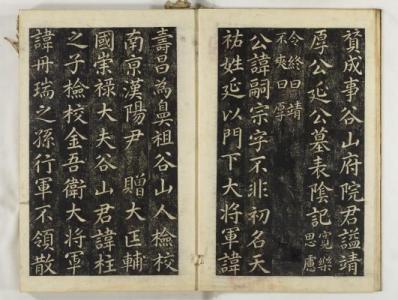 贊成事谷山府院君謚靖
厚公延公墓表陰記
寬樂
思慮
令終曰靖
不爽曰厚
公諱嗣宗字不非初名天
祐姓延以門下大將軍諱
壽昌為鼻祖谷山人檢校
南亰漢陽尹 贈大匡輔
國崇禄大夫谷山君諱柱
之子檢校金吾衛大將軍
諱瑞之孫行軍不領散